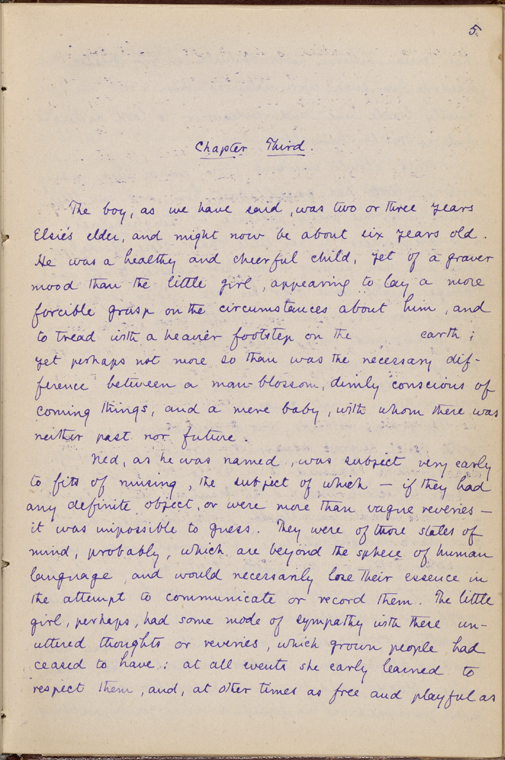 5.
Chapter Third.
The boy, as we have said, was two or three years
Elsie's elder, and might now be about six years old.
He was a healthy and cheerful child, yet of a graver
mood than the little girl, appearing to lay a more
forcible grasp on the circumstances about him, and
to tread with a heavier footstep on the earth;
yet perhaps not more so than was the necessary dif-
ference between a man-blossom, dimly conscious of
coming things, and a mere baby, with whom there was
neither past nor future.
Ned, as he was named, was subject very early
to fits of musing, the subject of which — if they had
any definite object, or were more than vague reveries —
it was impossible to guess. They were of those states of
mind, probably, which are beyond the sphere of human
language, and would necessarily lose their essence in
the attempt to communicate or record them. The little
girl, perhaps, had some mode of sympathy with these un-
uttered thoughts or reveries, which grown people had
ceased to have; at all events she early learned to
respect them, and, at other times as free and playful as